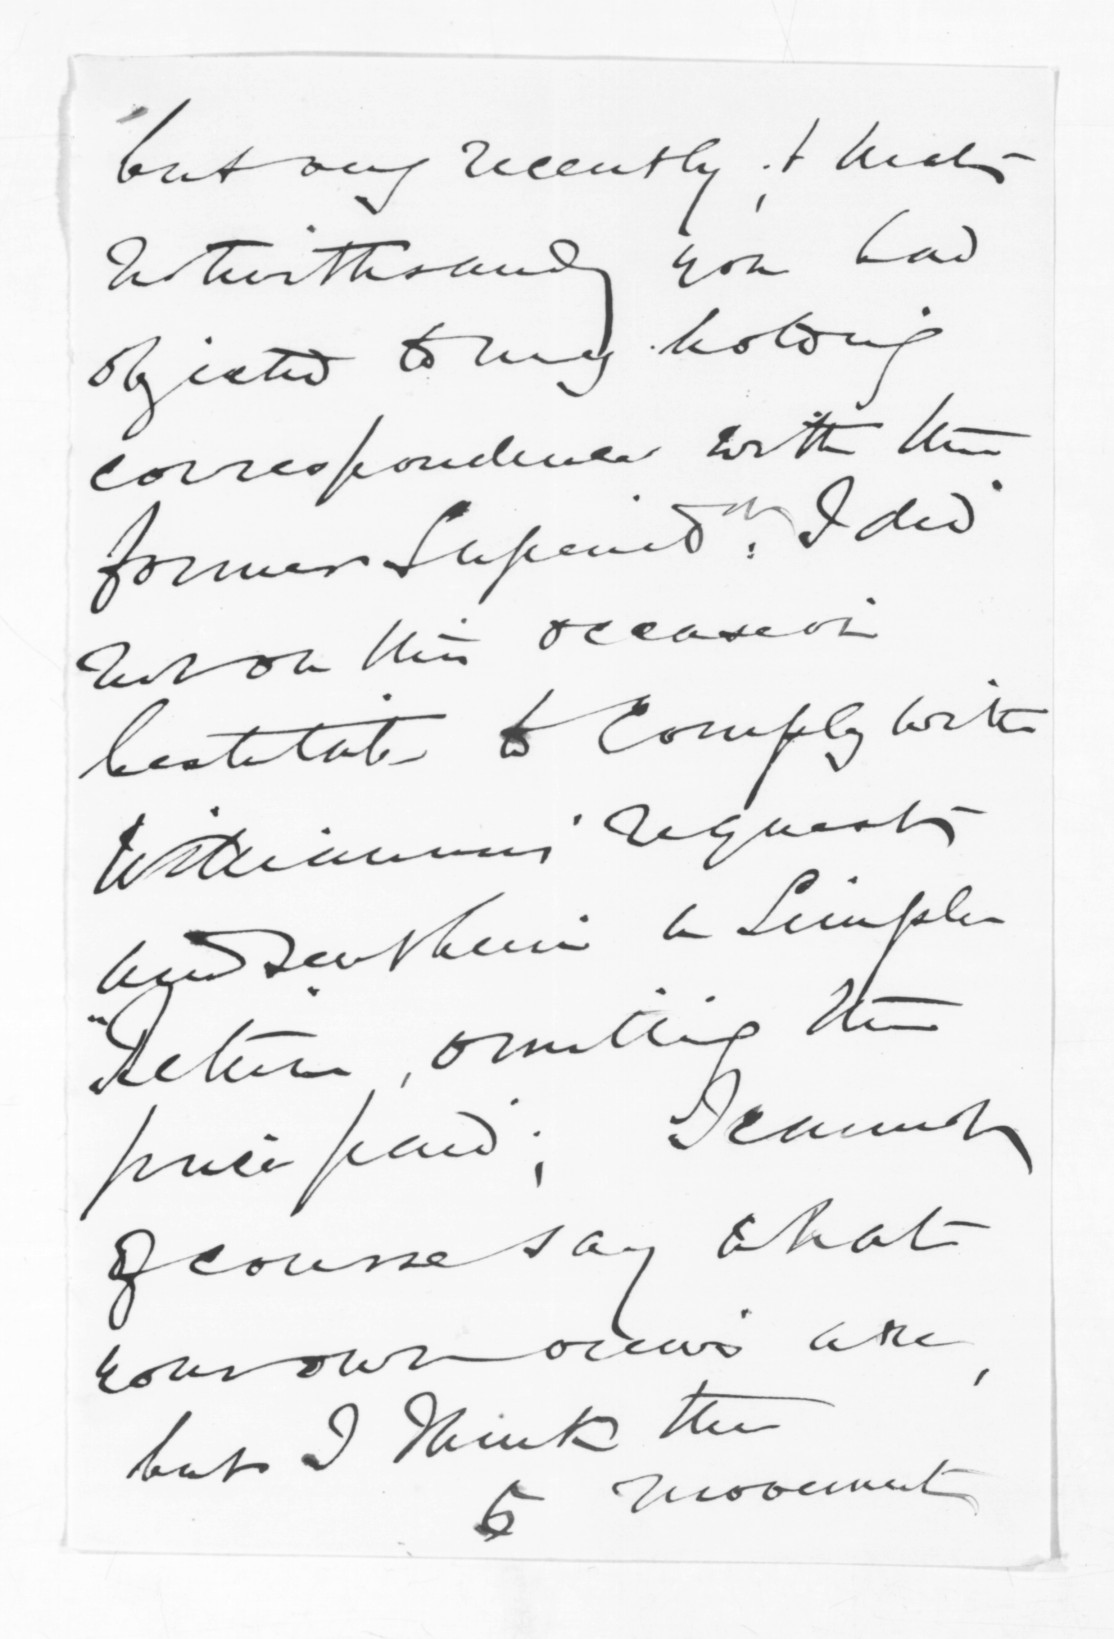 but very recently, & that
notwithsandg you had
objected to my holding
correspondence with the
former Superintdt. I did
not on this occasion
hesitate to comply with
Williamson's request
and sent him a Simple
"Return", omitting the
price paid; I cannot
of course say what
your own views are,
but I think the
5 movement